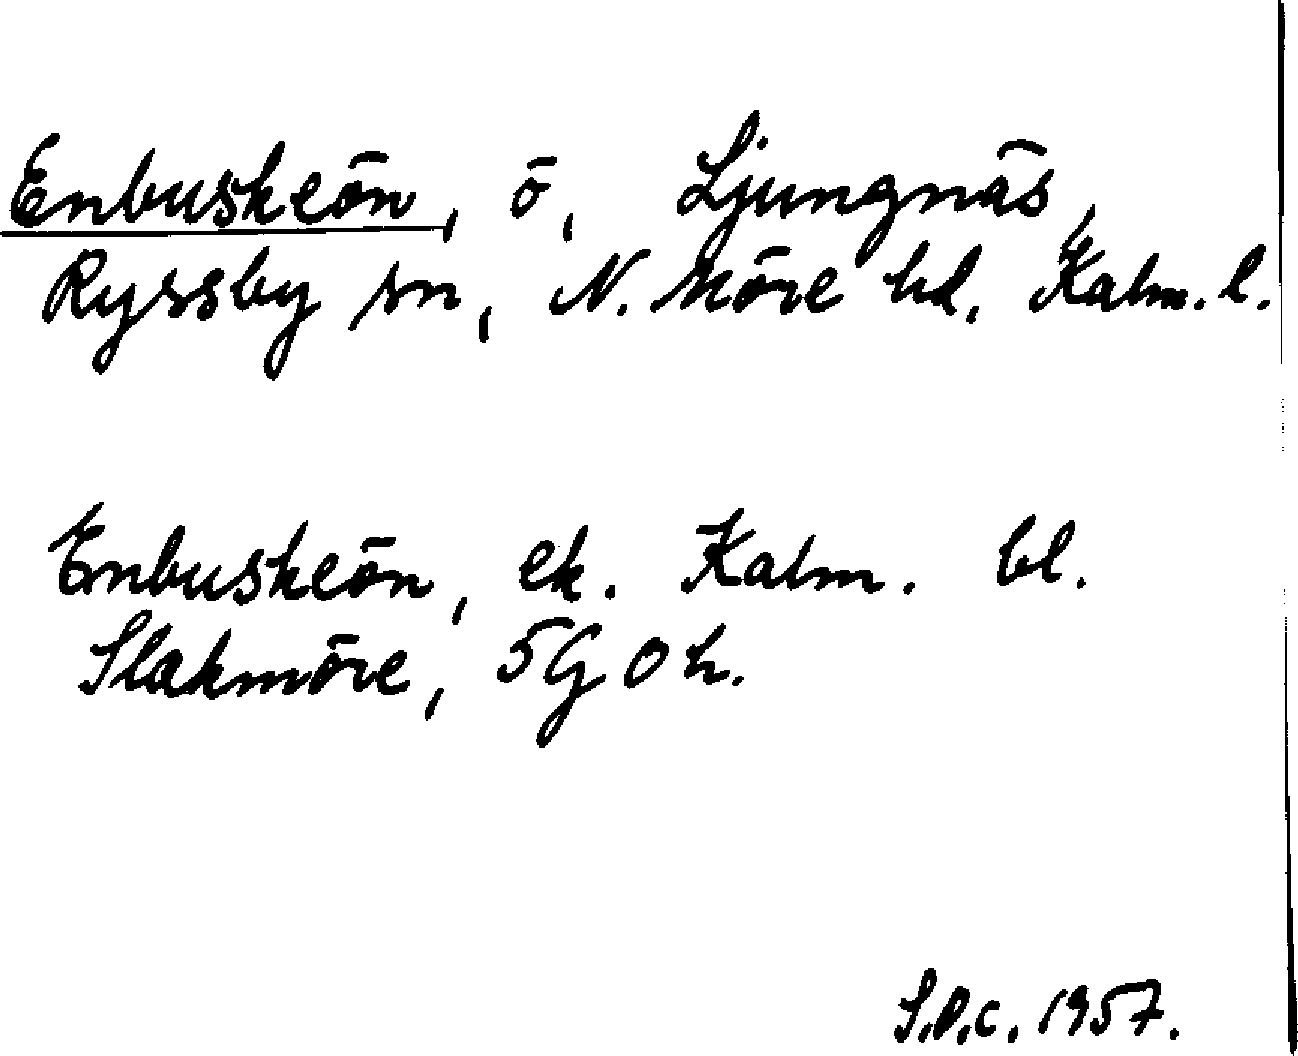 Enbuskeön, ö, Ljungnäs,
Ryssby sn, N. Möre hd. Kalm. l.
Enbuskeön, ek. Kalm. bl.
Slakmöre, 5G 0h.
S.O.C. 1957.